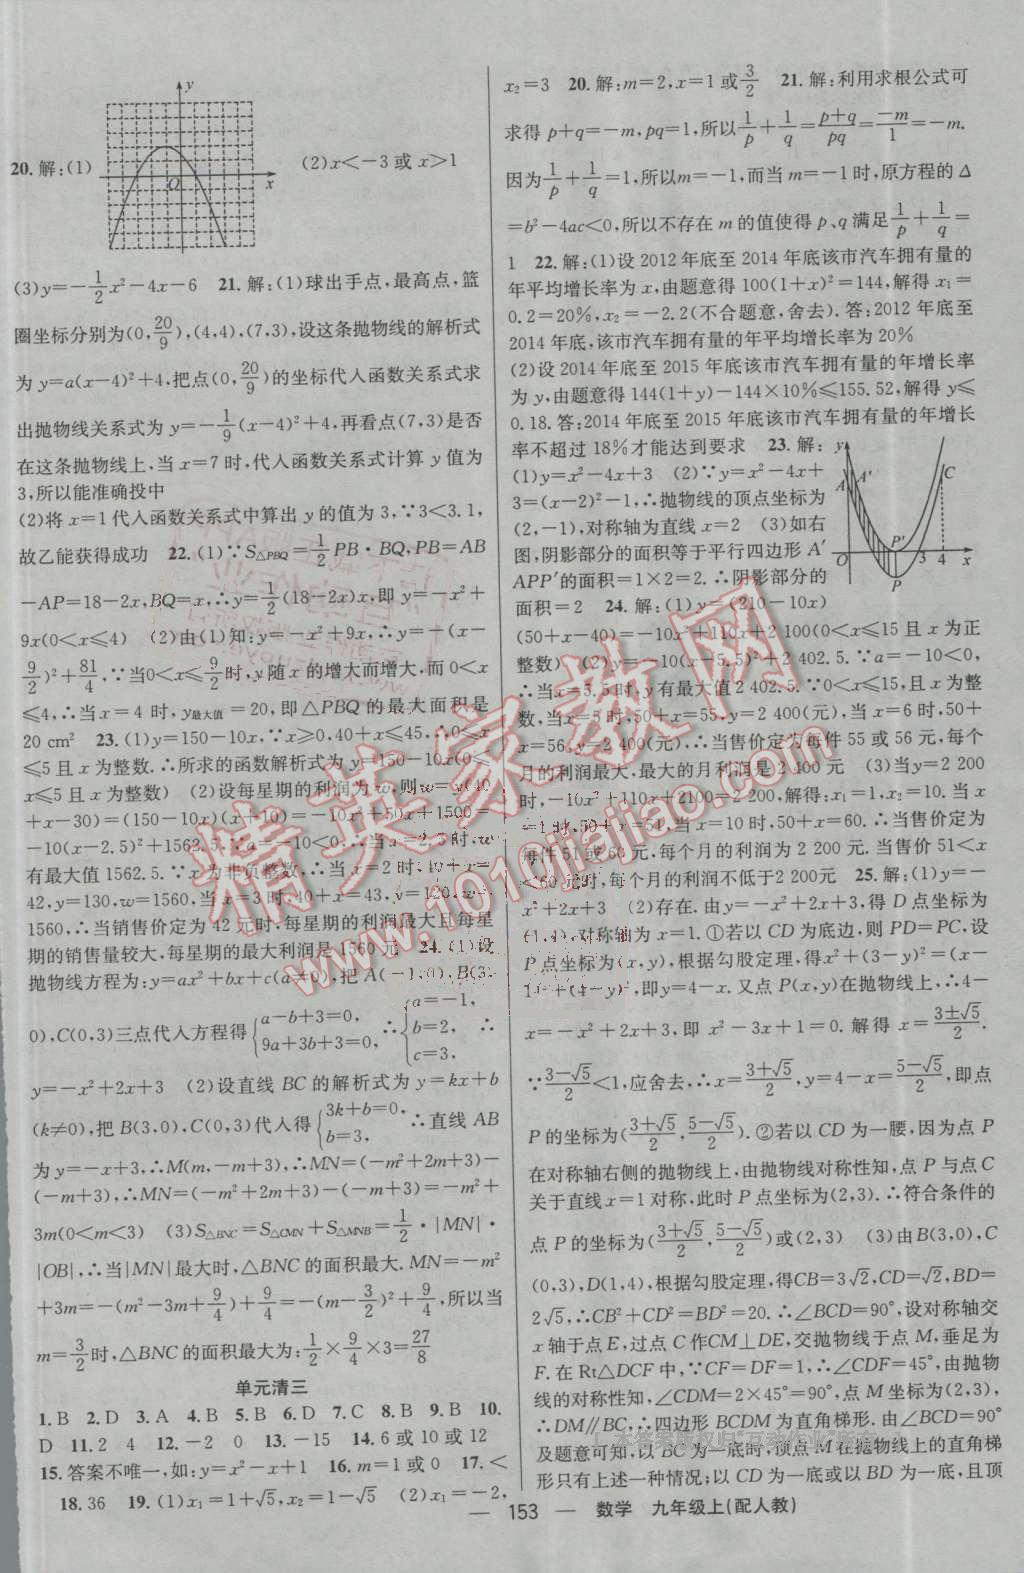 y
20.解:(1)
O
x
(2)x<-3 或 x>1
(3)y=-1/2x²-4x-6 21.解:(1)球出手点,最高点,篮
圈坐标分别为(0,20/9),(4,4),(7,3),设这条抛物线的解析式
为 y=a(x-4)²+4,把点(0,20/9)的坐标代入函数关系式求
出抛物线关系式为 y=-1/9(x-4)²+4,再看点(7,3)是否
在这条抛物线上,当 x=7 时,代入函数关系式计算 y 值为
3,所以能准确投中
(2)将 x=1 代入函数关系式中算出 y 的值为 3,∵3<3.1,
故乙能获得成功 22.(1)∵S△PBQ=1/2PB·BQ,PB=AB
-AP=18-2x,BQ=x,∴y=1/2(18-2x)x,即 y=-x²+
9x(0<x≤4) (2)由(1)知:y=-x²+9x,∴y=-(x-
9/2)²+81/4,∵当0<x≤9/2时,y 随 x 的增大而增大,而 0<x
≤4,∴当 x=4 时,y最大值=20,即△PBQ 的最大面积是
20 cm² 23.(1)y=150-10x,∵x≥0,40+x≤45,∴0≤x
≤5 且 x 为整数.∴所求的函数解析式为 y=150-10x(0≤
x≤5 且 x 为整数) (2)设每星期的利润为 w,则w=y(40
+x-30)=(150-10x)(x+10)=-10x²+50x+1500=
-10(x-2.5)²+1562.5.∵a=-10<0,∴当 x=2.5 时,w
有最大值 1562.5.∵x 为非负整数,∴当 x=2 时,40+x=
42,y=130,w=1560,当 x=3 时,40+x=43,y=120,w=
1560,∴当销售价定为 42 元时,每星期的利润最大且每星
期的销售量较大,每星期的最大利润是 1560 元 24.(1)设
抛物线方程为:y=ax²+bx+c(a≠0),把 A(-1,0),B(3,
0),C(0,3)三点代入方程得{a-b+3=0, 9a+3b+3=0. ∴{a=-1, b=2, c=3. ∴
y=-x²+2x+3 (2)设直线 BC 的解析式为 y=kx+b
(k≠0),把 B(3,0),C(0,3)代入得{3k+b=0, b=3. ∴直线 AB
为 y=-x+3,∴M(m,-m+3),∴MN=(-m²+2m+3)-
(-m+3),∴MN=(-m²+2m+3)-(-m+3)=-m²+
3m(0<m<3) (3)S△BNC=S△CMN+S△MNB=1/2·|MN|·
|OB|,∴当|MN|最大时,△BNC 的面积最大.MN=-m²
+3m=-(m²-3m+9/4)+9/4=-(m-3/2)²+9/4,所以当
m=3/2时,△BNC 的面积最大为:1/2×9/4×3=27/8
单元清三
1.B 2.D 3.A 4.B 5.B 6.D 7.C 8.B 9.B 10.
D 11.2 4 12.-2 0 13.-15 14.6 或 10 或 12
15.答案不唯一,如:y=x²-x+1 16.m=1 或 0 17.<
18.36 19.(1)x₁=1+√5,x₂=1-√5 (2)x₁=-2,
x₂=3 20.解:m=2,x=1 或3/2 21.解:利用求根公式可
求得 p+q=-m,pq=1,所以1/p+1/q=(p+q)/pq=-m/1=-m.
因为1/p+1/q=1,所以m=-1,而当 m=-1 时,原方程的 Δ
=b²-4ac<0,所以不存在 m 的值使得 p、q 满足1/p+1/q=
1 22.解:(1)设 2012 年底至 2014 年底该市汽车拥有量的
年平均增长率为 x,由题意得 100(1+x)²=144,解得 x₁=
0.2=20%,x₂=-2.2(不合题意,舍去).答:2012 年底至
2014 年底,该市汽车拥有量的年平均增长率为 20%
(2)设 2014 年底至 2015 年底该市汽车拥有量的年增长率
为 y,由题意得 144(1+y)-144×10%≤155.52,解得 y≤
0.18.答:2014 年底至 2015 年底该市汽车拥有量的年增长
率不超过 18%才能达到要求 23.解:
(1)y=x²-4x+3 (2)∵y=x²-4x+
3=(x-2)²-1,∴抛物线的顶点坐标为
(2,-1),对称轴为直线 x=2 (3)如右
图,阴影部分的面积等于平行四边形 A′
APP′的面积=1×2=2.∴阴影部分的
面积=2 24.解:(1)y=(210-10x)
y
A
A′
C
P′
O
3
4
x
P
(50+x-40)=-10x²+110x+2 100(0<x≤15 且 x 为正
整数) (2)y=-10(x-5.5)²+2 402.5.∵a=-10<0,
∴当 x=5.5 时,y 有最大值 2 402.5.∵0<x≤15,且 x 为整
数,当 x=5 时,50+x=55,y=2 400(元),当 x=6 时,50+
x=56,y=2 400(元),∴当售价定为每件 55 或 56 元,每个
月的利润最大,最大的月利润是 2 400 元 (3)当 y=2 200
时,-10x²+110x+2100=2 200,解得:x₁=1,x₂=10. 当 x
=1 时,50+x=51,当 x=10 时,50+x=60. ∴当售价定为
每件 51 或 60 元,每个月的利润为 2 200 元.当售价 51<x
<60 元时,每个月的利润不低于2 200元 25.解:(1)y=-
x²+2x+3 (2)存在.由y=-x²+2x+3,得 D 点坐标为
(1,4),对称轴为 x=1.①若以 CD 为底边,则 PD=PC,设
P 点坐标为(x,y),根据勾股定理,得x²+(3-y)²=(x-
1)²+(4-y)²,即y=4-x.又点 P(x,y)在抛物线上,∴4-
x=-x²+2x+3,即 x²-3x+1=0.解得 x=(3±√5)/2.
∵(3-√5)/2<1,应舍去,∴x=(3+√5)/2,y=4-x=(5-√5)/2,即点
P 的坐标为((3+√5)/2,(5-√5)/2).②若以 CD 为一腰,因为点 P
在对称轴右侧的抛物线上,由抛物线对称性知,点 P与点 C
关于直线 x=1 对称,此时 P 点坐标为(2,3).∴符合条件的
点 P 的坐标为((3+√5)/2,(5-√5)/2)或(2,3) (3)由 B(3,0),C
(0,3),D(1,4),根据勾股定理,得CB=3√2,CD=√2,BD=
2√5,∴CB²+CD²=BD²=20.∴∠BCD=90°,设对称轴交
x 轴于点 E,过点 C 作CM⊥DE,交抛物线于点 M,垂足为
F.在 Rt△DCF 中,∵CF=DF=1,∴∠CDF=45°,由抛物
线的对称性知,∠CDM=2×45°=90°,点 M 坐标为(2,3).
∴DM∥BC,∴四边形 BCDM 为直角梯形.由∠BCD=90°
及题意可知,以 BC 为一底时,顶点 M 在抛物线上的直角梯
形只有上述一种情况;以 CD 为一底或以 BD 为一底,且顶
— 153 — 数学 九年级上(配人教)
精英家教网
www.1010jiajiao.com